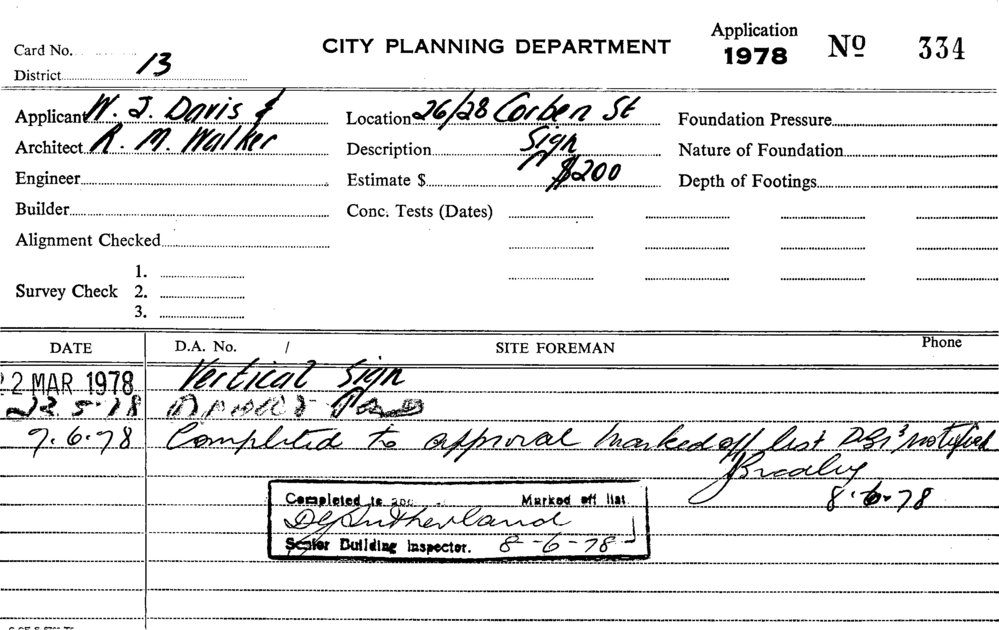 Card No.
CITY PLANNING DEPARTMENT
Application
1978
No 334
District 13
Applicant W. J. Davis &
Location 26/28 Corben St
Foundation Pressure
Architect R. M. Walker
Description Sign
Nature of Foundation
Engineer
Estimate $ $200
Depth of Footings
Builder
Conc. Tests (Dates)
Alignment Checked
1.
Survey Check 2.
3.
DATE
D.A. No. /
SITE FOREMAN
Phone
2 MAR 1978 Vertical Sign
22.5.78
7.6.78 Completed to approval marked off list notified
8.6.78
Completed to Marked off list
DG Sutherland
Senior Building Inspector. 8-6-78